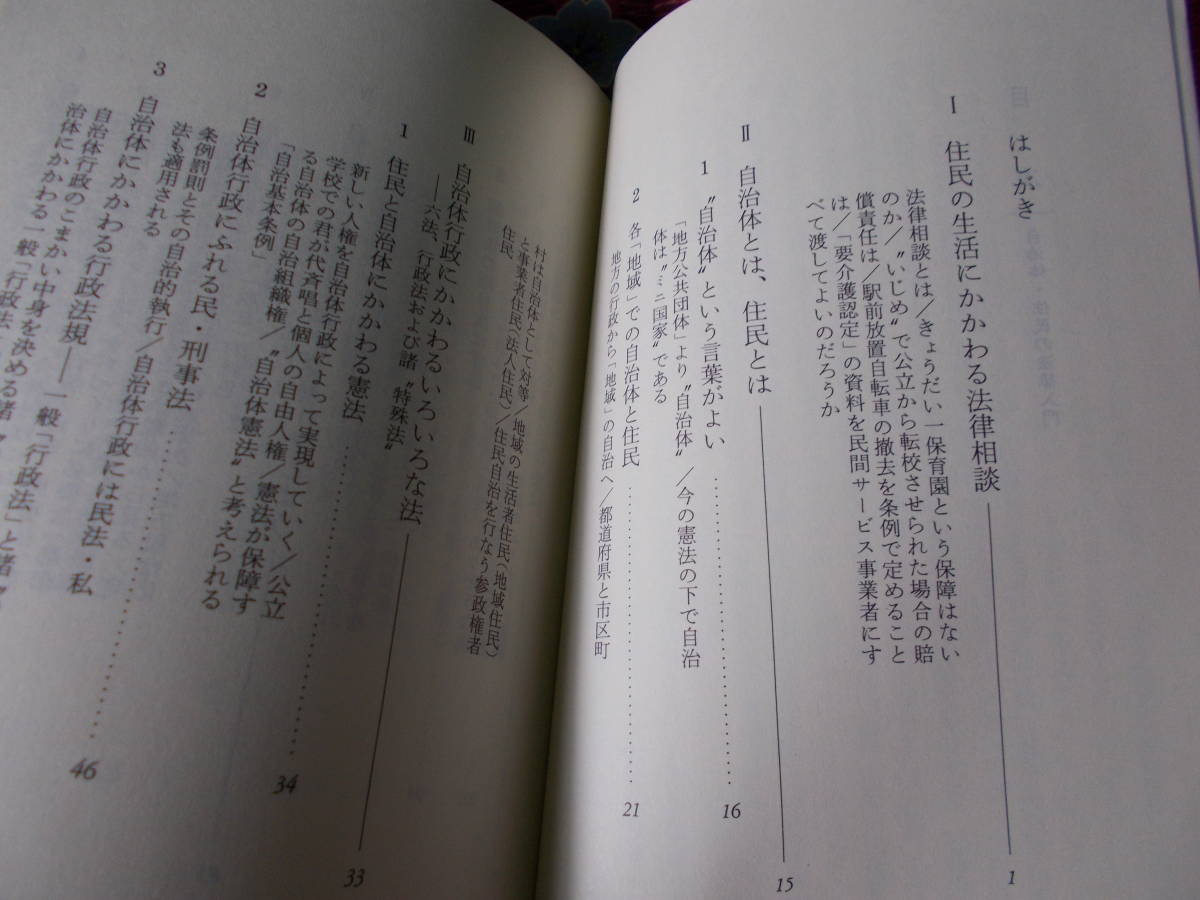 はしがき
Ⅰ 住民の生活にかかわる法律相談 1
法律相談とは/きょうだい一保育園という保障はない
のか/〝いじめ〟で公立から転校させられた場合の賠
償責任は/駅前放置自転車の撤去を条例で定めること
は/「要介護認定」の資料を民間サービス事業者にす
べて渡してよいのだろうか
Ⅱ 自治体とは、住民とは 15
1 〝自治体〟という言葉がよい 16
「地方公共団体」より〝自治体〟/今の憲法の下で自治
体は〝ミニ国家〟である
2 各「地域」での自治体と住民 21
地方の行政から「地域」の自治へ/都道府県と市区町
村は自治体として対等/地域の生活者住民(地域住民)
と事業者住民(法人住民)/住民自治を行なう参政権者
住民
Ⅲ 自治体行政にかかわるいろいろな法 33
——六法、行政法および諸〝特殊法〟
1 住民と自治体にかかわる憲法 34
新しい人権を自治体行政によって実現していく/公立
学校での君が代斉唱と個人の自由人権/憲法が保障す
る自治体の自治組織権/〝自治体憲法〟と考えられる
「自治基本条例」
2 自治体行政にふれる民・刑事法 46
条例罰則とその自治的執行/自治体行政には民法・私
法も適用される
3 自治体にかかわる行政法規——一般「行政法」と諸
自治体行政のこまかい中身を決める諸
治体にかかわる一般「行政法